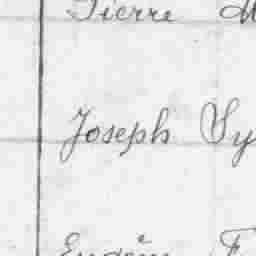 Pierre M
Joseph Sy
Eugène F